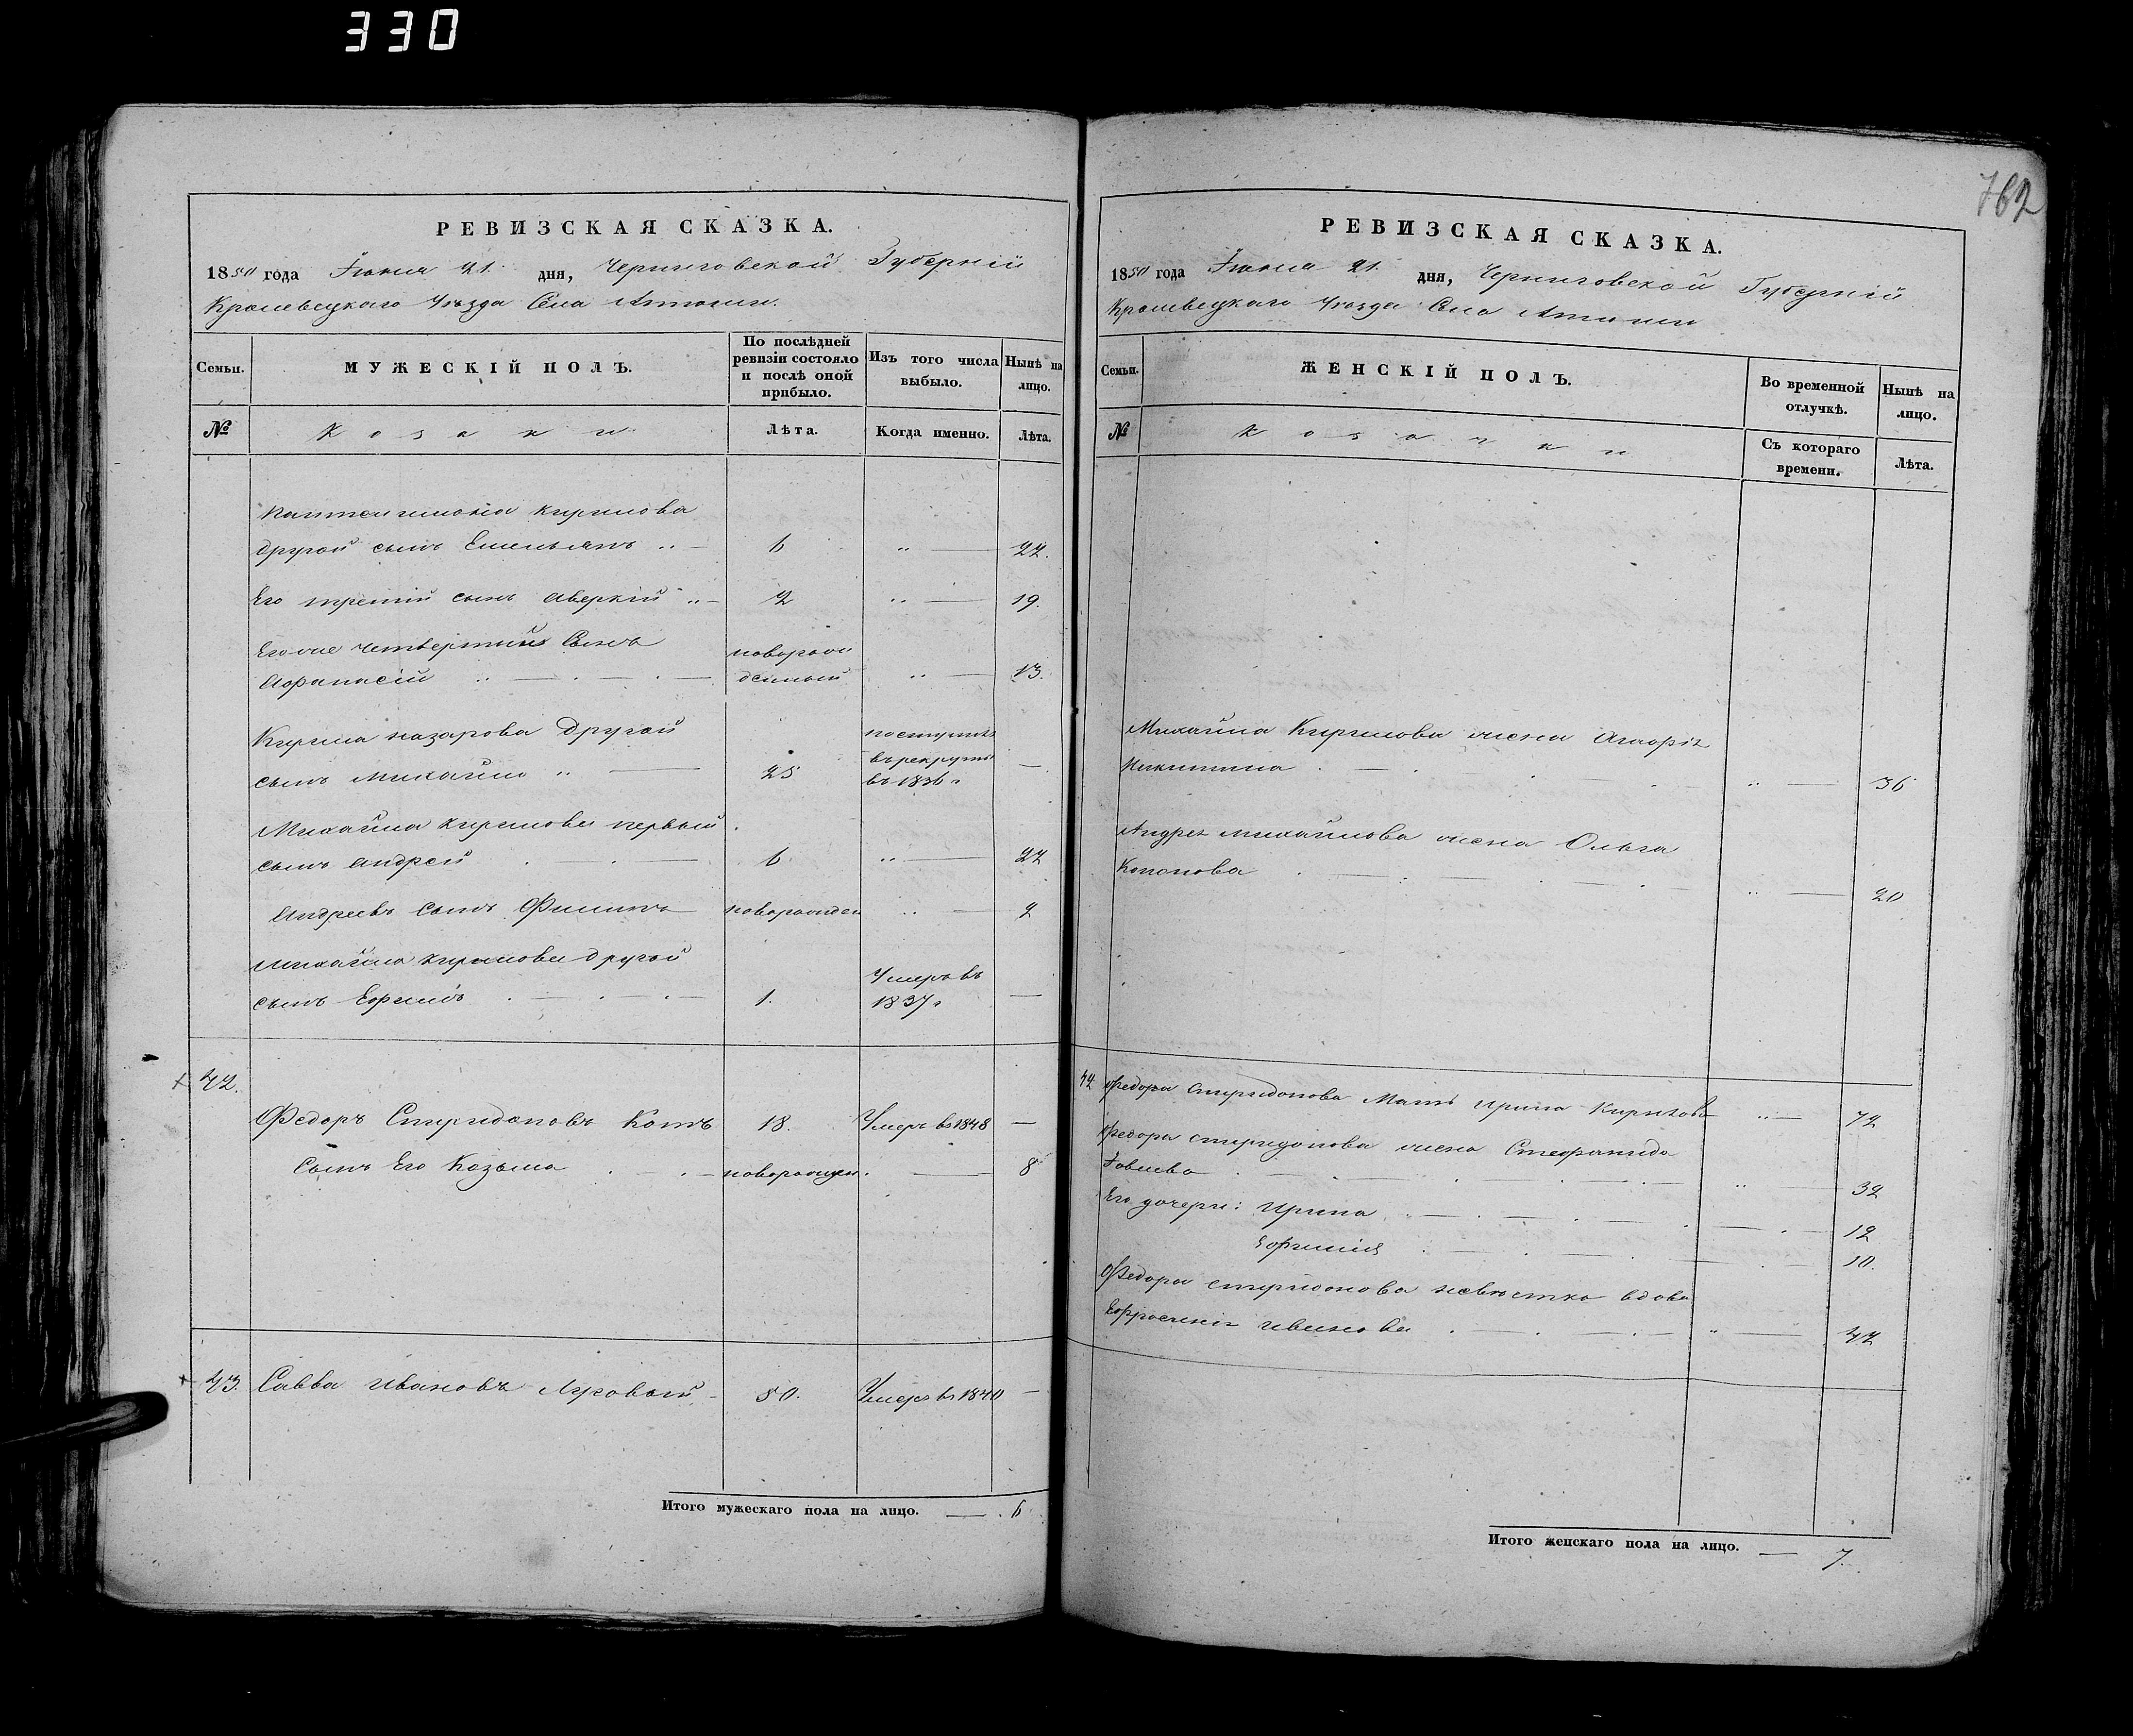 330
762
РЕВИЗСКАЯ СКАЗКА.
1850 года Іюня 21. дня, Черниговской Губерніи
Кролевецкаго Уѣзда Села
Семьи.
МУЖЕСКІЙ ПОЛЪ.
По послѣдней
ревизіи состояло
и послѣ оной
прибыло.
Изъ того числа
выбыло.
Нынѣ на
лицо.
№
Козаки
Лѣта.
Когда именно.
Лѣта.
Кирилова
другой сынъ Емельянъ „ — 6 „ — 22.
Его третій сынъ Аверкій „ — 2 „ — 19.
Его же четвертый Сынъ новорож
Афанасій „ — денный „ — 13.
Кирила Назарова другой поступилъ
сынъ Михайло „ — 25 въ рекруты —
въ 1836 г
Михайла Кирилова первый
сынъ Андрей — 6 „ — 22
Андреевъ Сынъ Филипъ новорожден „ — 2
Михайла Кирилова другой Умеръ въ
сынъ Ефимъ — 1. 1837 г —
42.
Федоръ Спиридоновъ Котъ 18. Умеръ въ 1848 —
Сынъ Его Козьма — новорожден. — 8
43. Савва Ивановъ Луговый — 50. Умеръ въ 1840 —
Итого мужескаго пола на лицо. — 6
РЕВИЗСКАЯ СКАЗКА.
1850 года Іюня 21. дня, Черниговской Губерніи
Кролевецкаго Уѣзда Села
Семьи.
ЖЕНСКІЙ ПОЛЪ.
Во временной
отлучкѣ.
Нынѣ на
лицо.
№
Козачки
Съ котораго
времени.
Лѣта.
Михайла Кирилова жена
Никитина — „ — 36
Андрея Михайлова жена Ольга
Кононова — „ — 20
42 Федора Спиридонова Мать Ирина „ — 72
Федора Спиридонова жена Стефанида
Іовлева — „ — 32
Его дочери: Ирина — 12
Ефимія — 10.
Федора Спиридонова невѣстка вдова
Ефросинія Иванова — „ — 42
Итого женскаго пола на лицо. — 7.